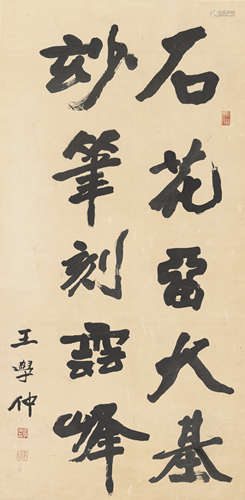 石花留大基
玅筆刻雲峰
王學仲